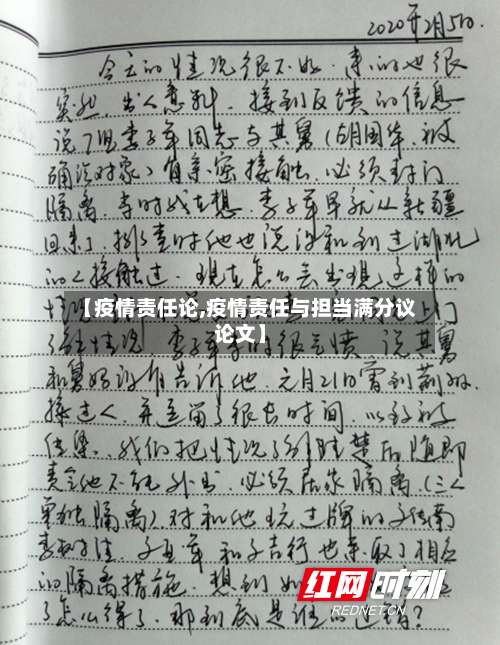 2020年2月5日.
今天的情况很不好.事情也很
突然.出人意料.接到反馈的信息
说7组李子军同志与其舅(胡国华.被
确诊对象)有亲密接触.必须封门
隔离.当时我在想.李子军早就从新疆
回来了.排查时他也说没和到过湖北
的人接触过.现在怎么会出现这样的
【疫情责任论,疫情责任与担当满分议
论文】
了解情况.李子军时很气愤.说其舅
和舅妈没有告诉他.元月21日曾到荆州
接过人.并逗留了很长时间.以致被
传染.我们把情况了解清楚后随即
责令他不能外出.必须居家隔离.(三人
单独隔离).对和他玩过牌的
和子吉行也采取了相应
的隔离措施.想到如
了怎么得了.那到底是谁的过错?
红网时刻
REDNET.CN